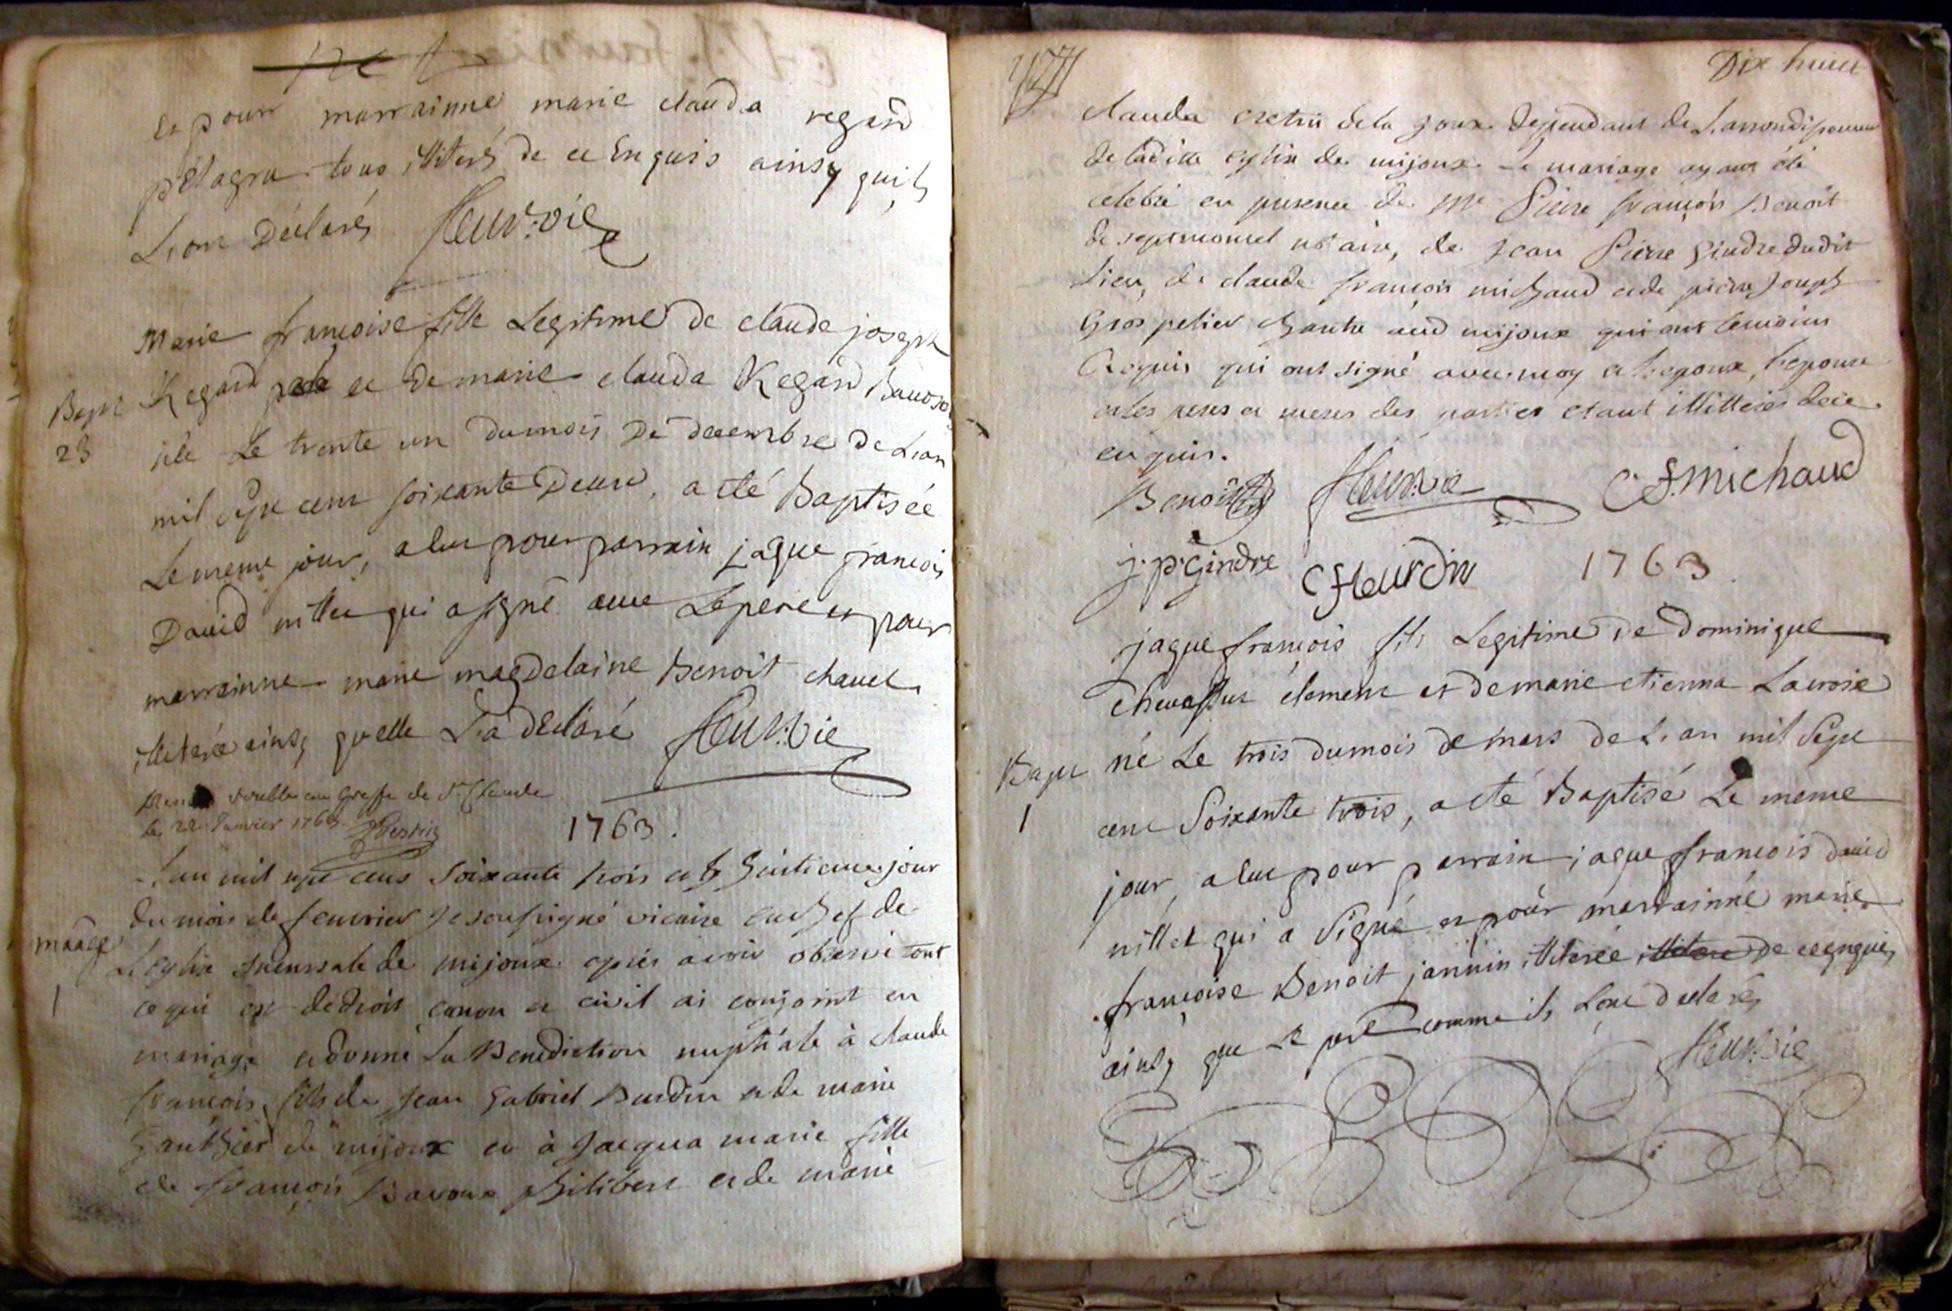 et pour marrainne marie clauda regard
pelagru tous illiterés de ce Enquis ainsy quils
L'ont Déclarés fleur:vie
Marie francoise fille Legitime de claude joseph
Regard et de marie clauda Regard Bauoso
Bapt
23
née Le trente un dumois De decembre de L'an
mil sept cent soixante Deux, a eté Baptisée
Le meme jour, a eue pour parrain jaque francois
David nillet qui a signé avec Le pere et pour
marrainne marie magdelaine Benoit chauet
illiterée ainsy quelle L'a declaré fleur:vie
double au Greffe de St Claude
le 22 Janvier 1763
1763.
L'an mil sept cens soixante trois et le huitieme jour
du mois de feuvrier Je soussigné vicaire en chef de
mariage
1
L'eglise succursale de mijoux apres avoir observé tout
ce qui est de droit canon et civil ai conjoint en
mariage et donné La Benediction nuptiale à claude
francois fils de Jean Gabriel Burdin et de marie
Gauthier de mijoux et à Jacqua marie fille
de françois Bavoux philibert et de marie
Dix huict
clauda de la Joux dependant de L'arrondissement
de laditte eglise de mijoux Le mariage ayant été
celebré en presence de Me Pierre françois Benoit
de septmoncel notaire, de Jean Pierre Gindre dudit
lieu, de claude françois michaud et de pierre Joseph
Gros pelier chantre aud mijoux qui ont temoins
Requis qui ont signé avec moy et l'epoux, l'epouse
et les peres et meres des parties etant illitterés de ce
enquis.
Benoit fleurvie C f. michaud
j. p. Gindre C f Burdin 1763
jaque francois fils Legitime de Dominique
chevassus clement et de marie etienna Lacroix
Bapt
1
né Le trois dumois de mars de L'an mil Sept
cent Soixante trois, a eté Baptisé Le meme
jour, a eue pour parrain jaque francois david
nillet qui a signé et pour marrainne marie
françoise Benoit jannin illiterée illitere de ce enquis
ainsy que Le pere comme ils L'ont declarés
fleur:vie